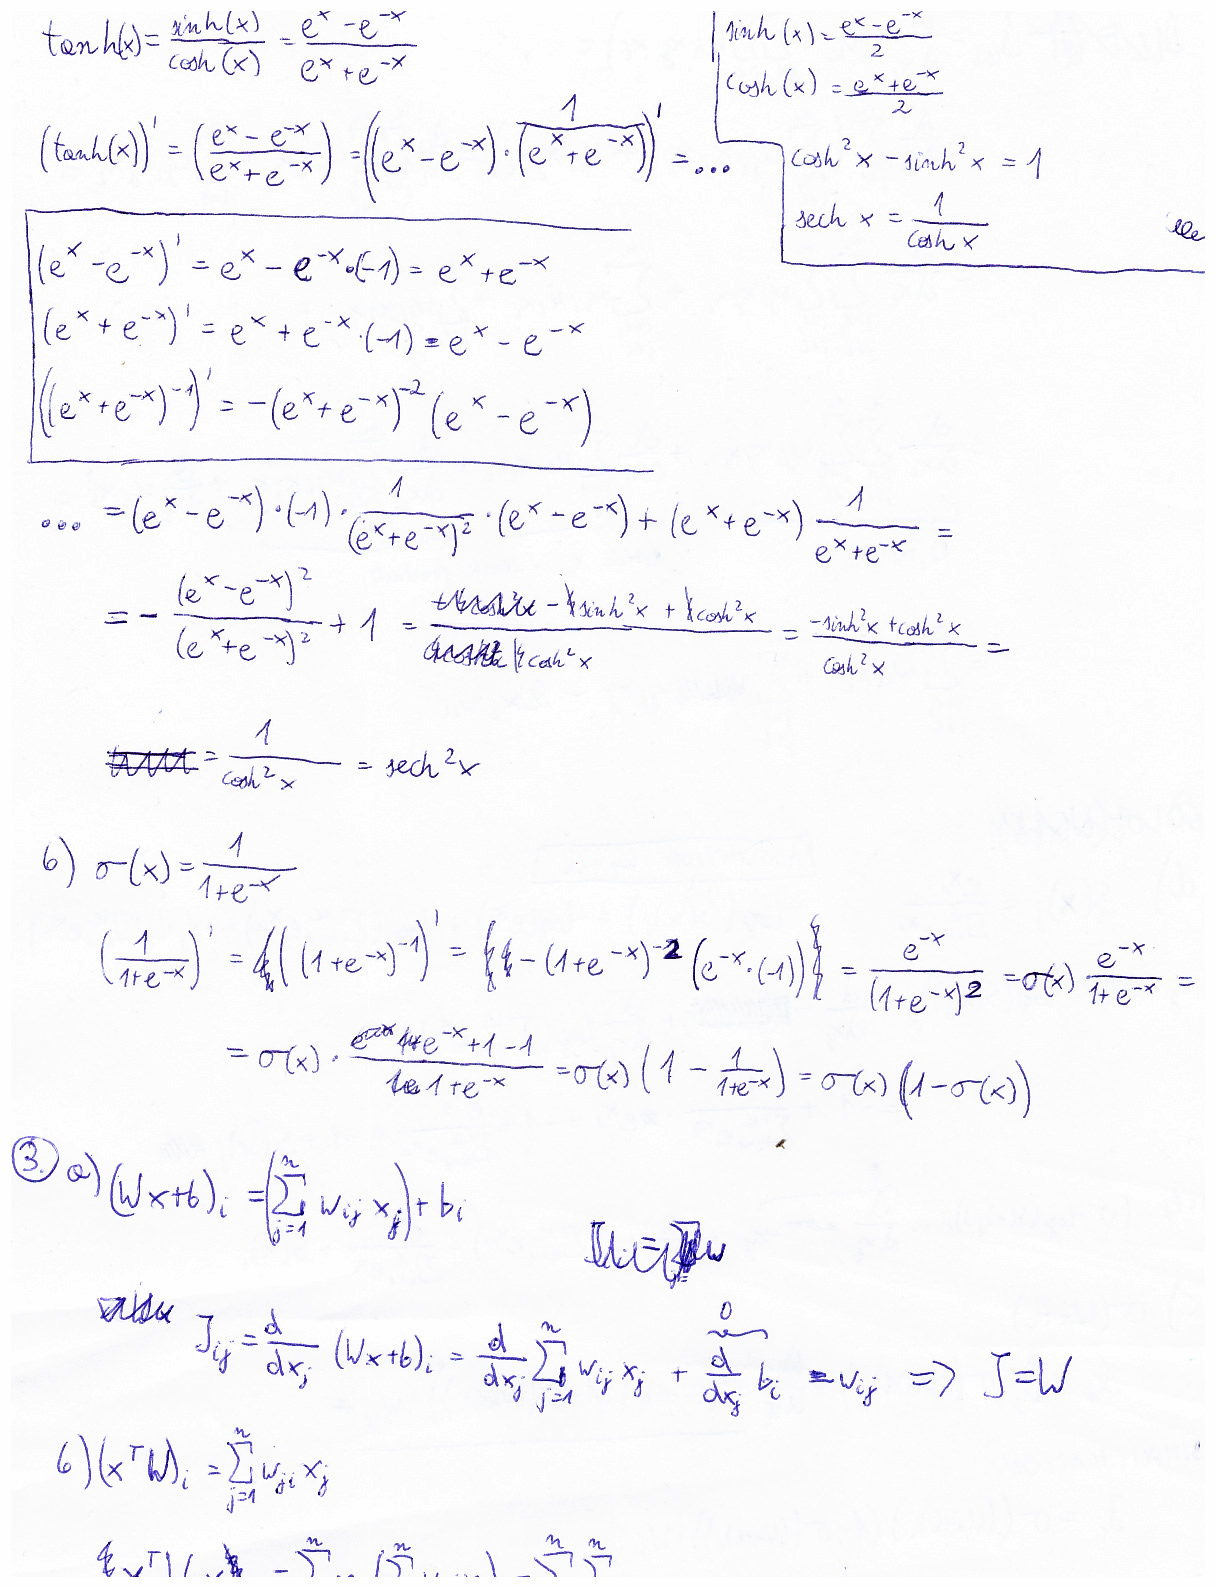 tanh(x) = sinh(x)/cosh(x) = (e^x - e^-x)/(e^x + e^-x)
sinh(x) = (e^x - e^-x)/2
cosh(x) = (e^x + e^-x)/2
cosh²x - sinh²x = 1
sech x = 1/cosh x
(tanh(x))' = ((e^x - e^-x)/(e^x + e^-x)) = ((e^x - e^-x) · 1/(e^x + e^-x))' = ...
(e^x - e^-x)' = e^x - e^-x · (-1) = e^x + e^-x
(e^x + e^-x)' = e^x + e^-x · (-1) = e^x - e^-x
((e^x + e^-x)^-1)' = -(e^x + e^-x)^-2 (e^x - e^-x)
... = (e^x - e^-x) · (-1) · 1/(e^x + e^-x)² · (e^x - e^-x) + (e^x + e^-x) 1/(e^x + e^-x) =
= - (e^x - e^-x)²/(e^x + e^-x)² + 1 = (- sinh²x + cosh²x)/(cosh²x) = (-sinh²x + cosh²x)/(cosh²x) =
= 1/cosh²x = sech²x
b) σ(x) = 1/(1+e^-x)
(1/(1+e^-x))' = ((1+e^-x)^-1)' = -(1+e^-x)^-2 (e^-x · (-1)) = e^-x/(1+e^-x)² = σ(x) e^-x/(1+e^-x) =
= σ(x) · (e^-x + 1 - 1)/(1+e^-x) = σ(x) (1 - 1/(1+e^-x)) = σ(x) (1 - σ(x))
3. a) (Wx+b)_i = (∑_{j=1}^n w_ij x_j) + b_i
J_ij = d/dx_j (Wx+b)_i = d/dx_j ∑_{j=1}^n w_ij x_j + d/dx_j b_i = w_ij => J = W
0
b) (x^T W)_i = ∑_{j=1}^n w_ji x_j